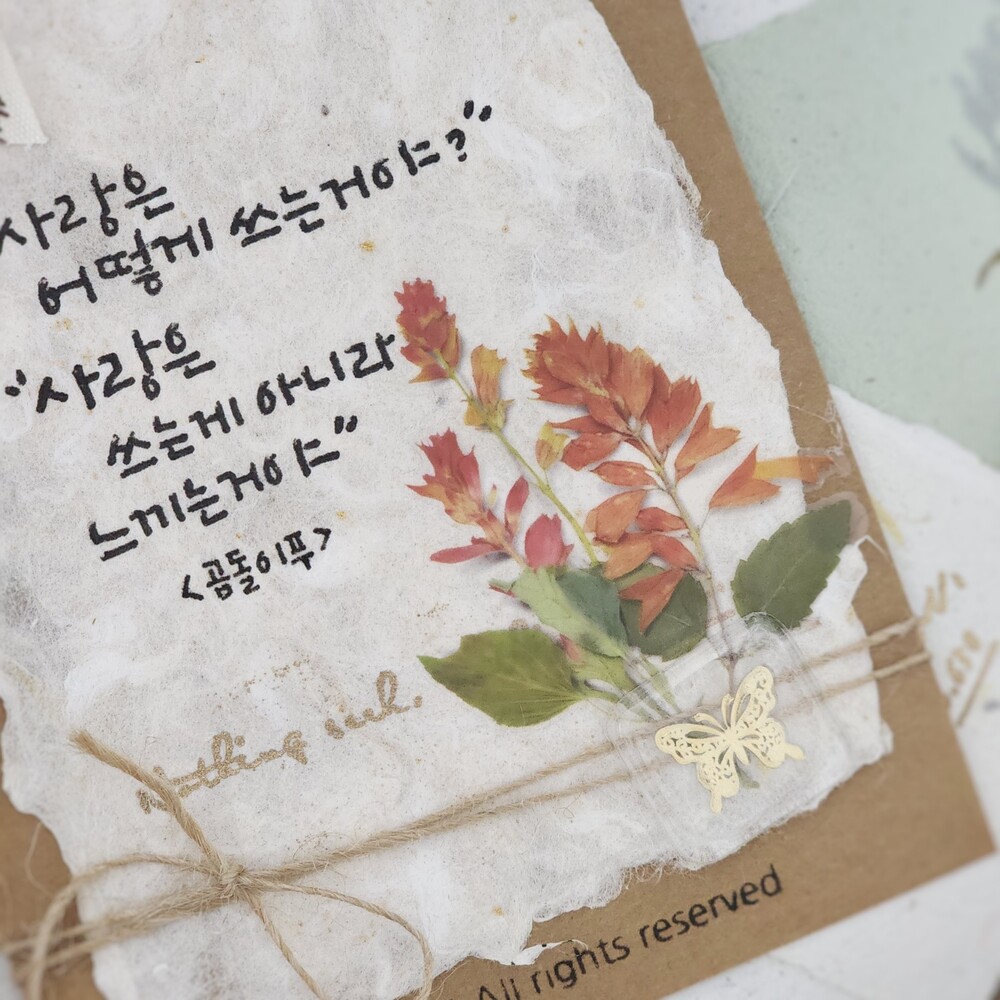 사랑은
어떻게 쓰는거야?"
"사랑은
쓰는게 아니라
느끼는거야"
<곰돌이푸>
All rights reserved